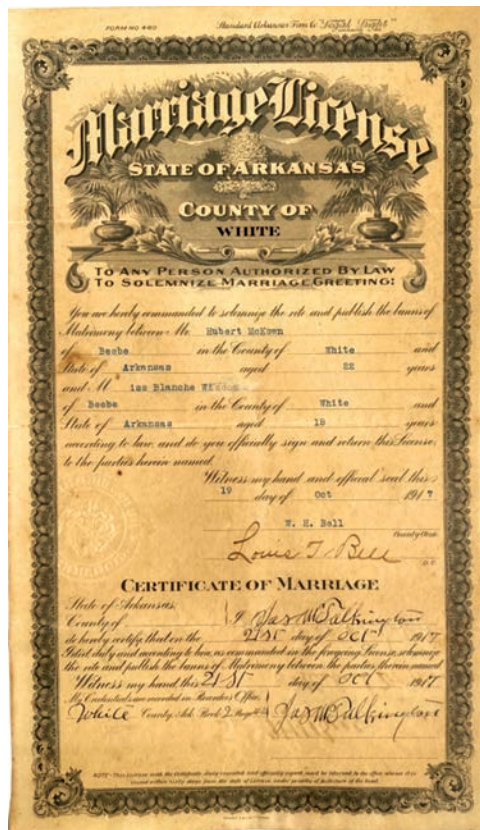 FORM NO 440
Standard Arkansas Form Co "Legal Blanks"
Marriage License
STATE OF ARKANSAS
COUNTY OF
WHITE
TO ANY PERSON AUTHORIZED BY LAW
TO SOLEMNIZE MARRIAGE GREETING:
You are hereby commanded to solemnize the rite and publish the banns of
Matrimony between Mr. Hubert McKown
of Beebe in the County of White and
State of Arkansas aged 22 years
and M iss Blanche
of Beebe in the County of White and
State of Arkansas aged 18 years
according to law, and do you officially sign and return this License,
to the parties herein named.
Witness my hand and official seal this
19 day of Oct 1917
W. H. Bell
County Clerk
Louis T Bell
D.C.
CERTIFICATE OF MARRIAGE
State of Arkansas,
County of } I, Jas M Talkington
do hereby certify that on the 21st day of Oct 1917
I did duly and according to law, as commanded in the foregoing License, solemnize
the rite and publish the banns of Matrimony between the parties therein named
Witness my hand this 21st day of Oct 1917
My Credentials are recorded in Recorder's Office,
White County, Ark Book 2 Page } Jas M Talkington